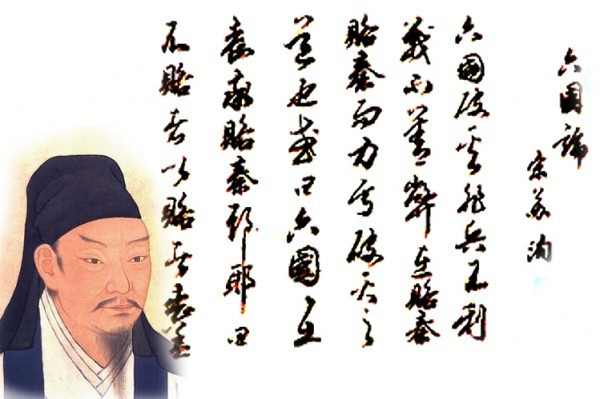 六國論
宋苏洵
六國破灭非兵不利
戰不善弊在賂秦
賂秦而力亏破灭之
道也或曰六國互
喪率賂秦耶曰
不賂者以賂者喪盖